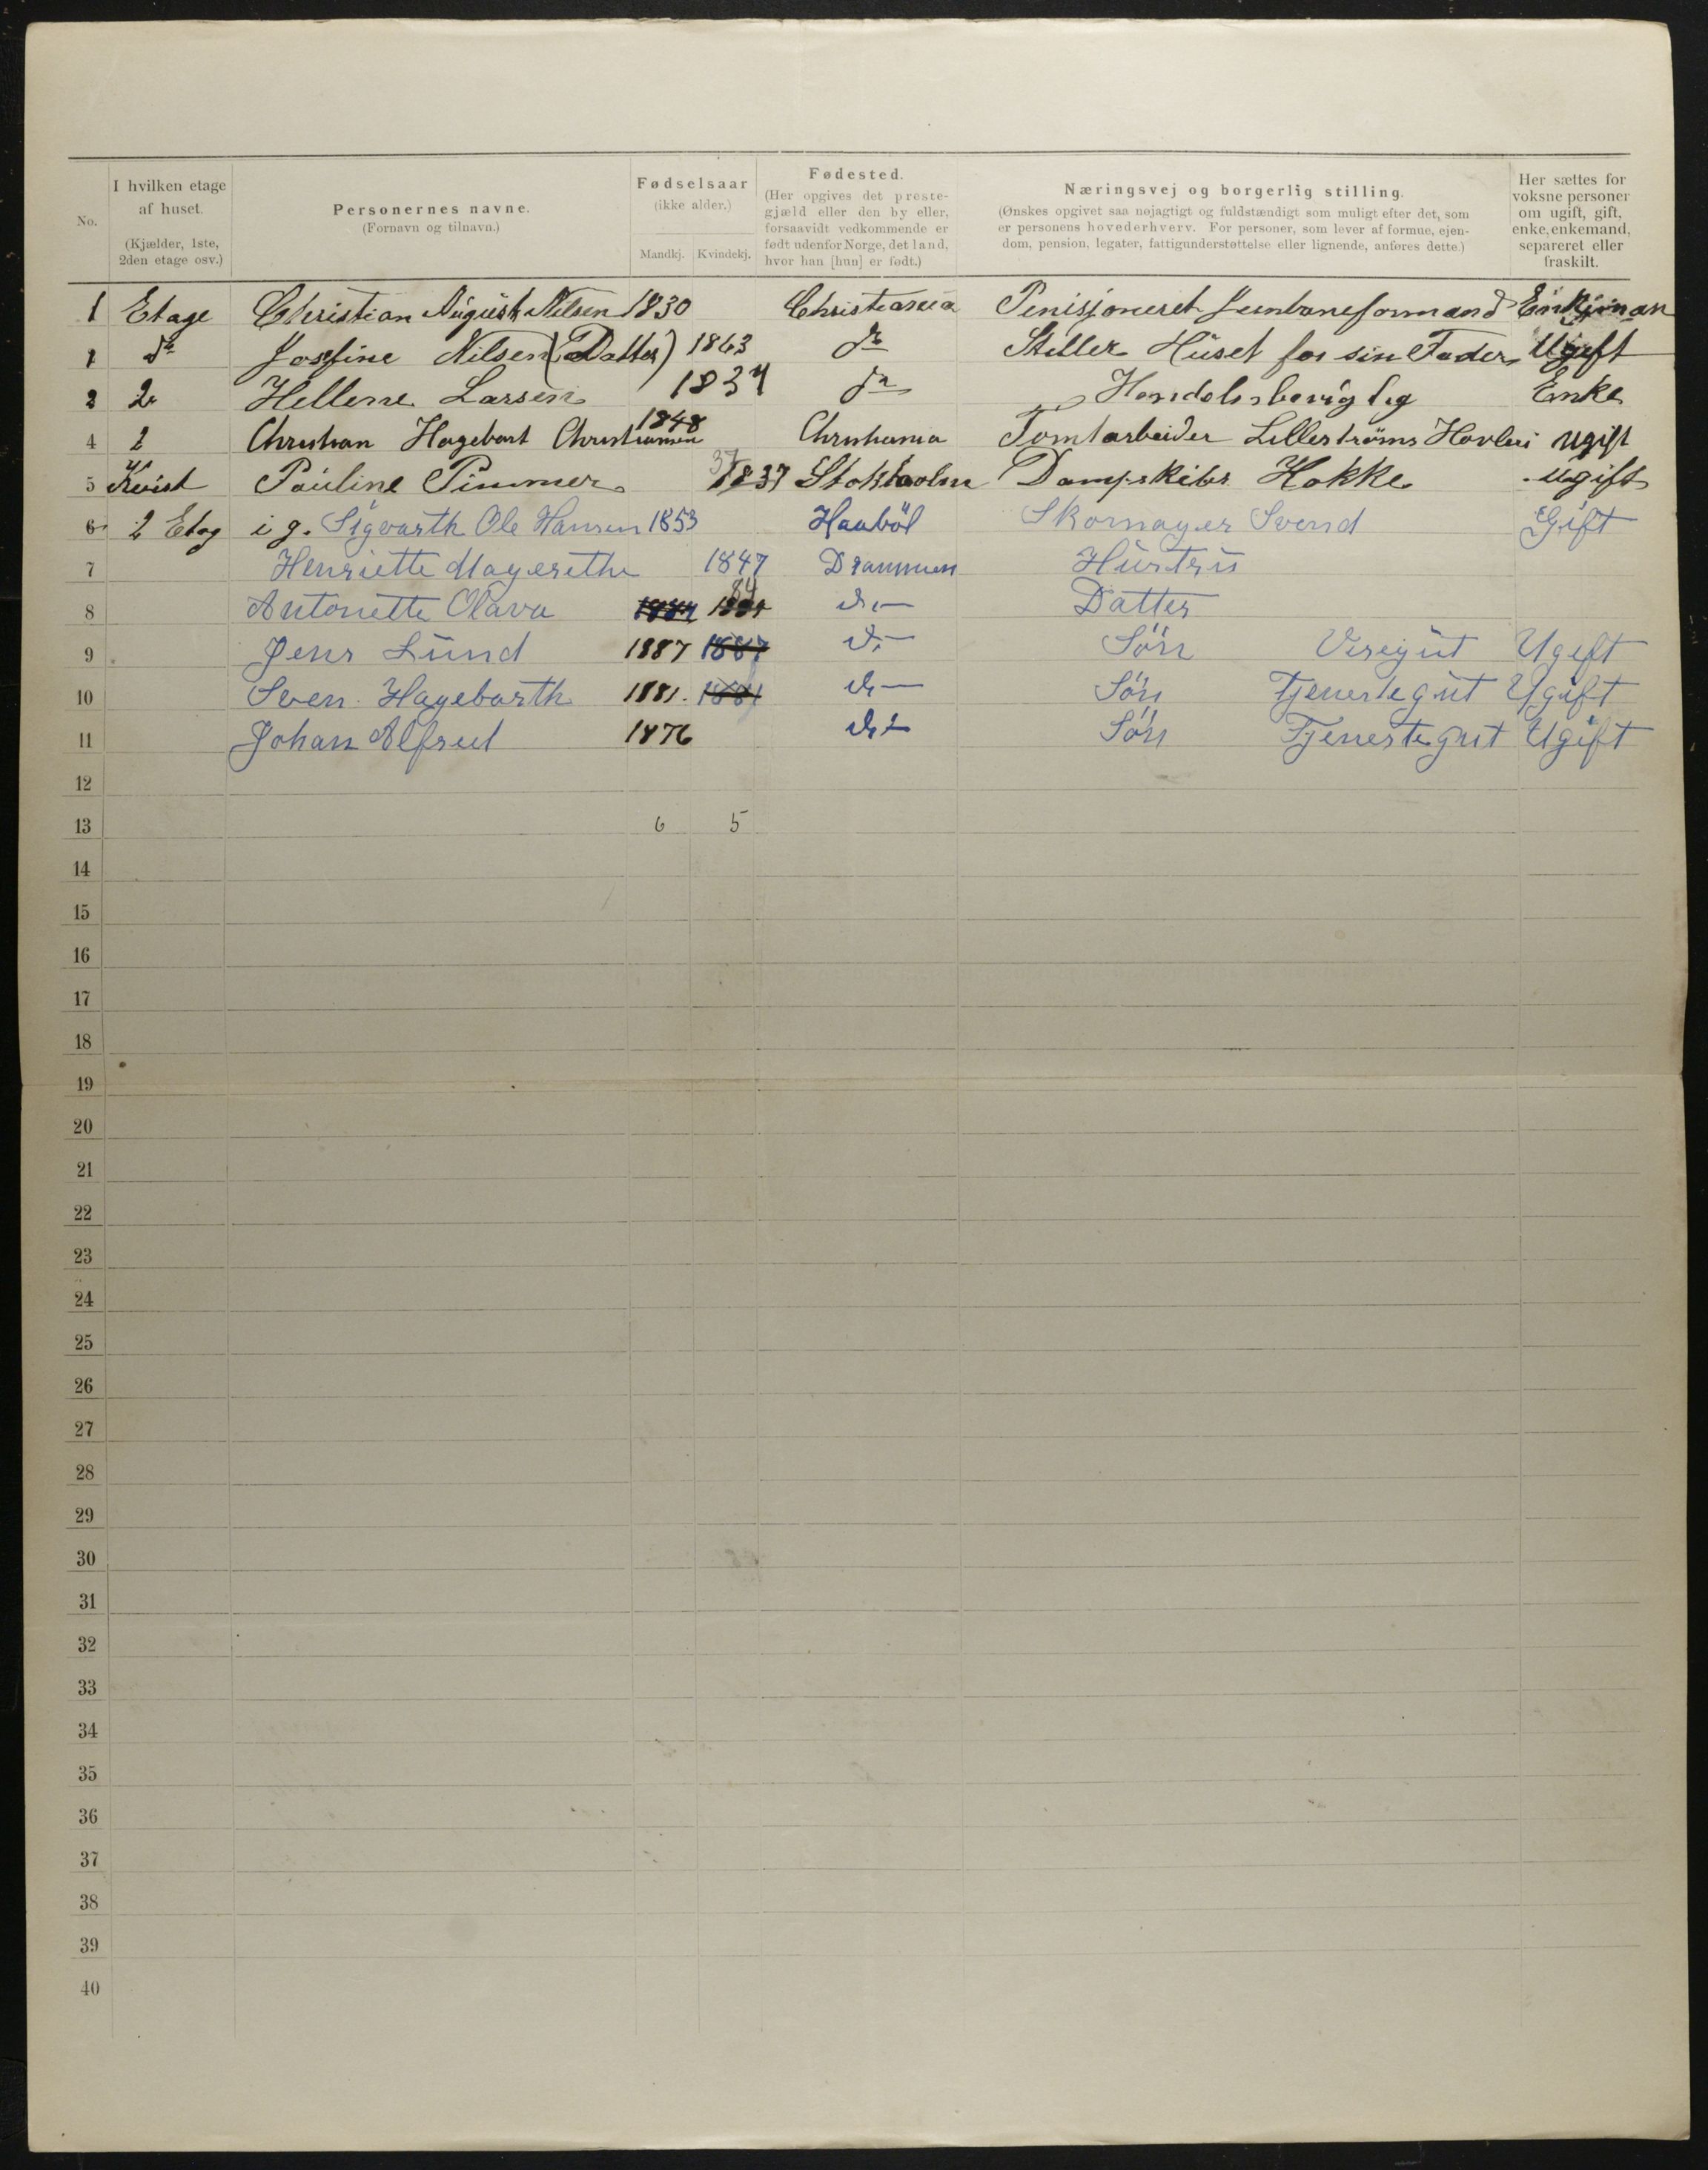 No.
I hvilken etage af huset. (Kjælder, 1ste, 2den etage osv.)
Personernes navne. (Fornavn og tilnavn.)
Fødselsaar (ikke alder.) Mandkj. Kvindekj.
Fødested. (Her opgives det prestegjæld eller den by eller, forsaavidt vedkommende er født udenfor Norge, det land, hvor han [hun] er født.)
Næringsvej og borgerlig stilling. (Ønskes opgivet saa nøjagtigt og fuldstændigt som muligt efter det, som er personens hovederhverv. For personer, som lever af formue, ejendom, pension, legater, fattigunderstøttelse eller lignende, anføres dette.)
Her sættes for voksne personer om ugift, gift, enke, enkemand, separeret eller fraskilt.
1 Etage Christian August Nilsen 1830 Christiania Penisjoneret Jernbaneformand
1 do Josefine Nilsen (Datter) 1863 do Steller Huset for sin Fader Ugift
2 Hellene Larsen 1837 do Handelsberigtig Enke
4 2 Christian Hagebart Christiansen 1848 Christiania Tomtarbeider Lillestrøms Hovleri ugift
5 Kvist Pauline Pimmer 37 1837 Stokholm Dampskibs Kokke ugift
6 2 Etag i g. Sigvarth Ole Hansen 1853 Haaböl Skomager Svend Gift
7 Henriette Magerethe 1847 Drammen Hustru
8 Antonette Olava 1884 84 do Datter
9 Jens Lund 1887 1887 do Sön Visegut Ugift
10 Sven Hagebarth 1881. 1881 do Sön Tjenestegut Ugift
11 Johan Alfred 1876 do Sön Tjenestegut Ugift
12
13 6 5
14
15
16
17
18
19
20
21
22
23
24
25
26
27
28
29
30
31
32
33
34
35
36
37
38
39
40